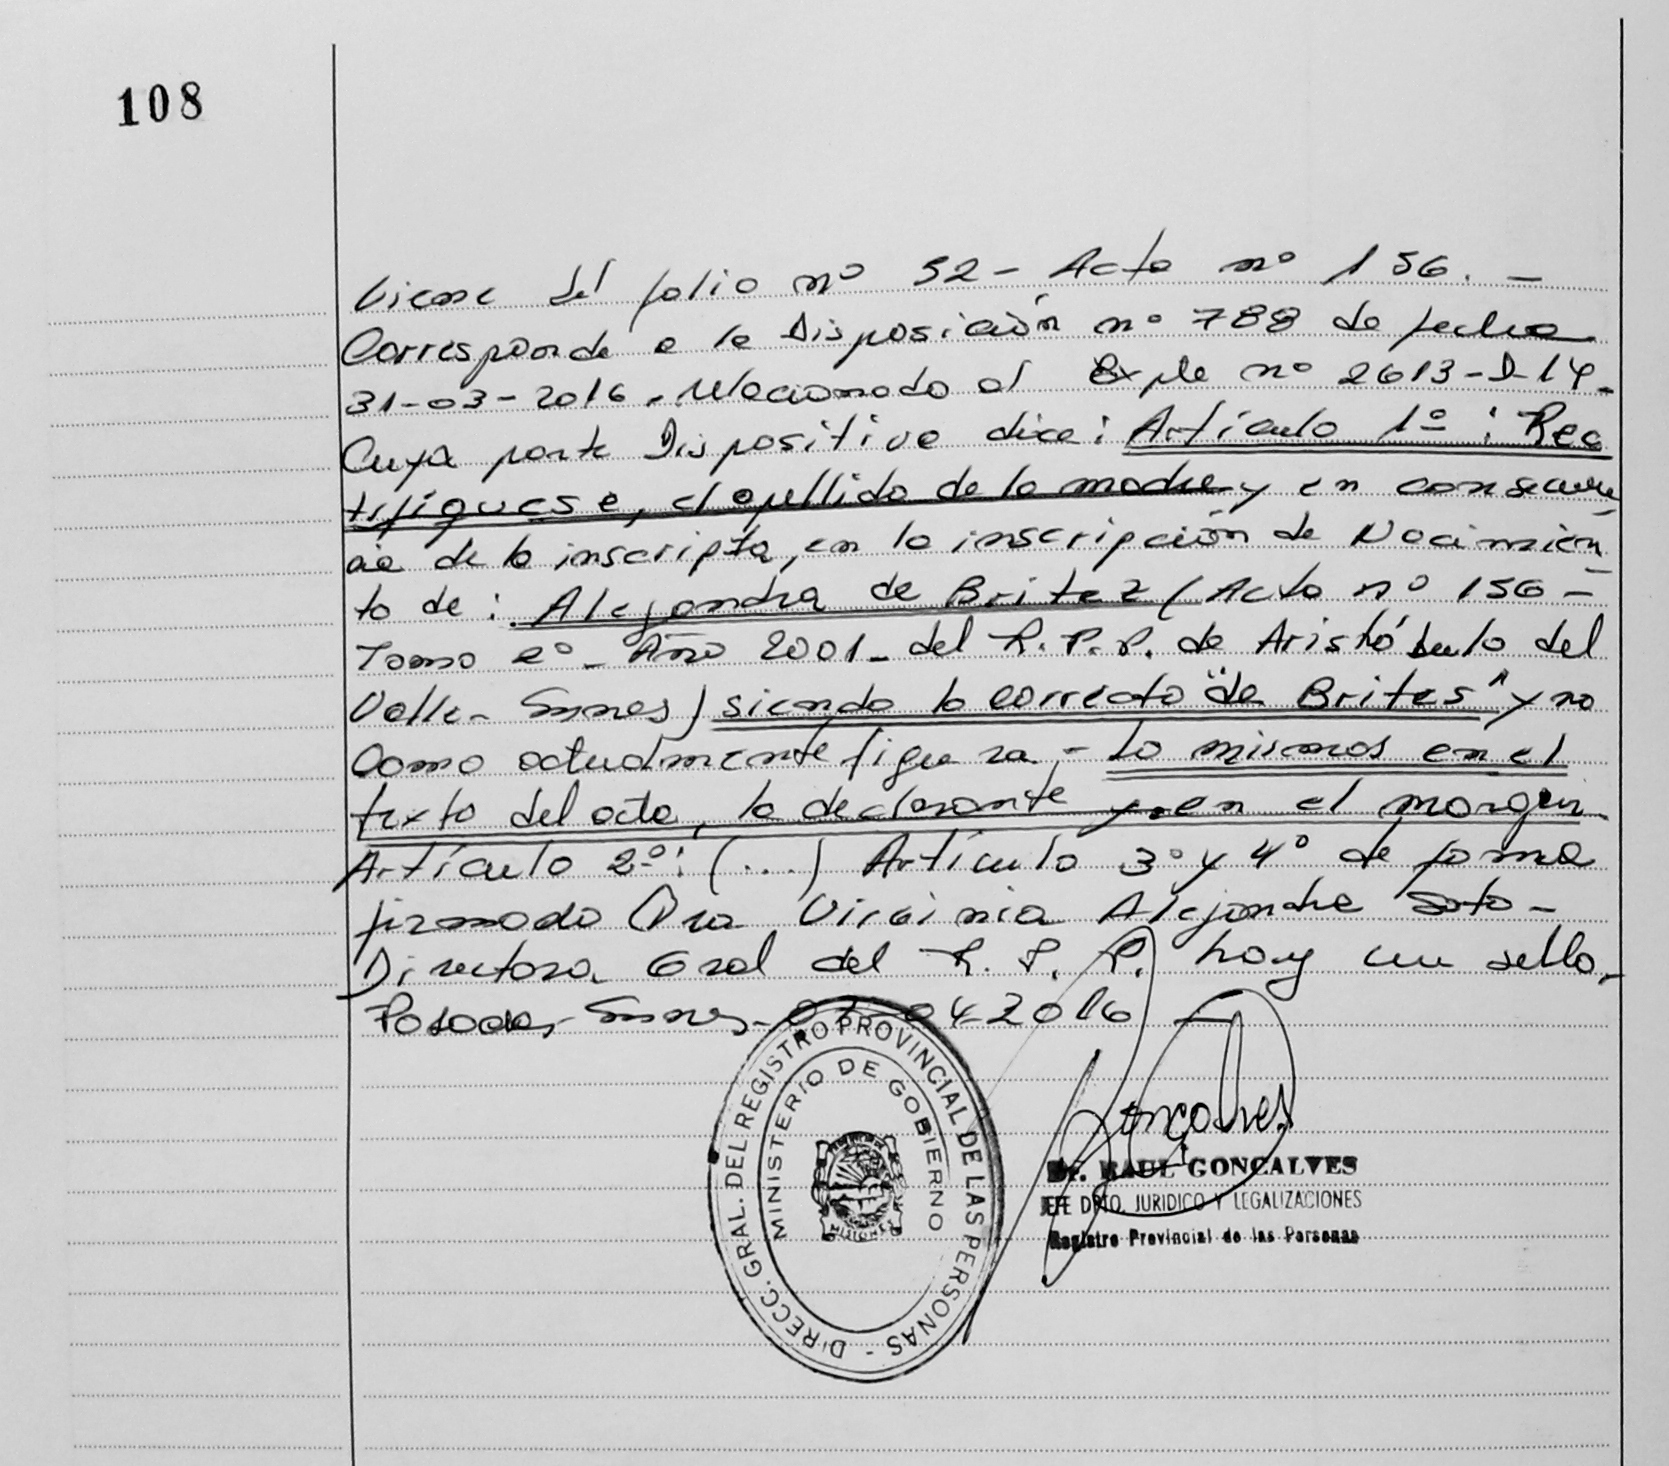 108
Viene del folio nº 52 - Acta nº 156. -
Corresponde a la Disposición nº 788 de fecha
31-03-2016. relacionado al Expte nº 2613-D-14-
Cuya parte Dispositiva dice: Artículo 1º: Rec
tifíquese, el apellido de la madre y en consecuen
cia de la inscripta, en la inscripción de Nacimien
to de: Alejandra de Britez (Acta nº 156 -
Tomo 2º - Año 2001 - del R.P.P. de Aristóbulo del
Valle - Msnes) siendo lo correcto "de Brites" y no
Como actualmente figura. - Lo mismos en el
texto del acta, la declarante y en el margen.
Artículo 2º: (...) Artículo 3º y 4º de forma
firmado Dra Virginia Alejandra Soto -
Directora Gral del R.P.P. hay un sello.
Posadas, Msnes - 07-04-2016 -
DIRECC. GRAL. DEL REGISTRO PROVINCIAL DE LAS PERSONAS -
MINISTERIO DE GOBIERNO
MISIONES
Gonçalves
Dr. RAUL GONCALVES
JEFE DPTO. JURIDICO Y LEGALIZACIONES
Registro Provincial de las Personas